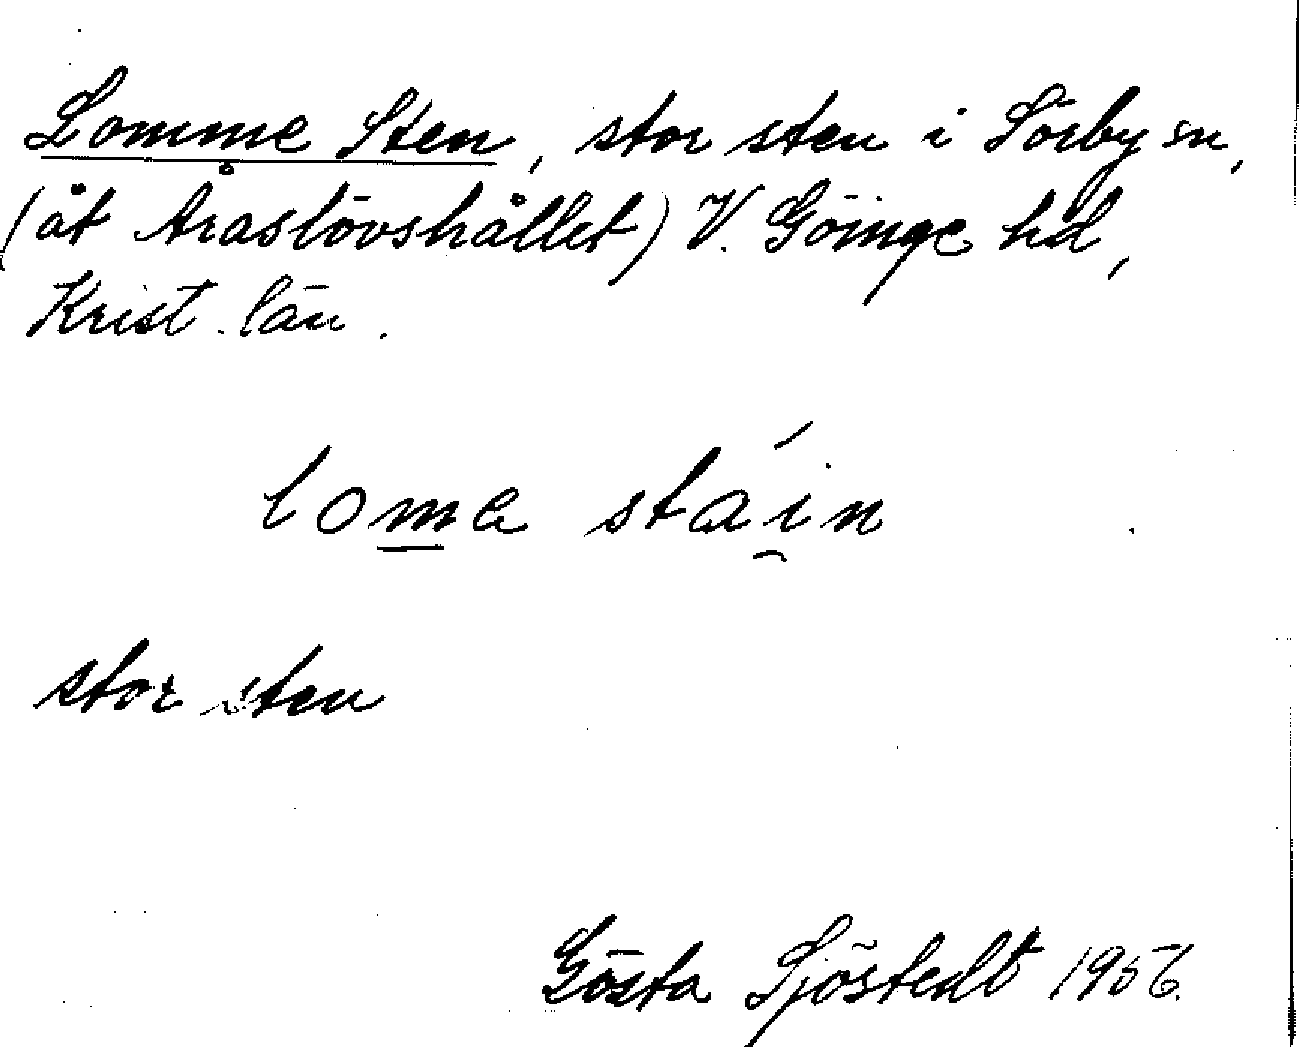 Lomme Sten, stor sten i Sörby sn,
(åt Åraslövshållet) V. Göinge hd,
Krist. län.
loma stáin
stor sten
Gösta Sjöstedt 1956.